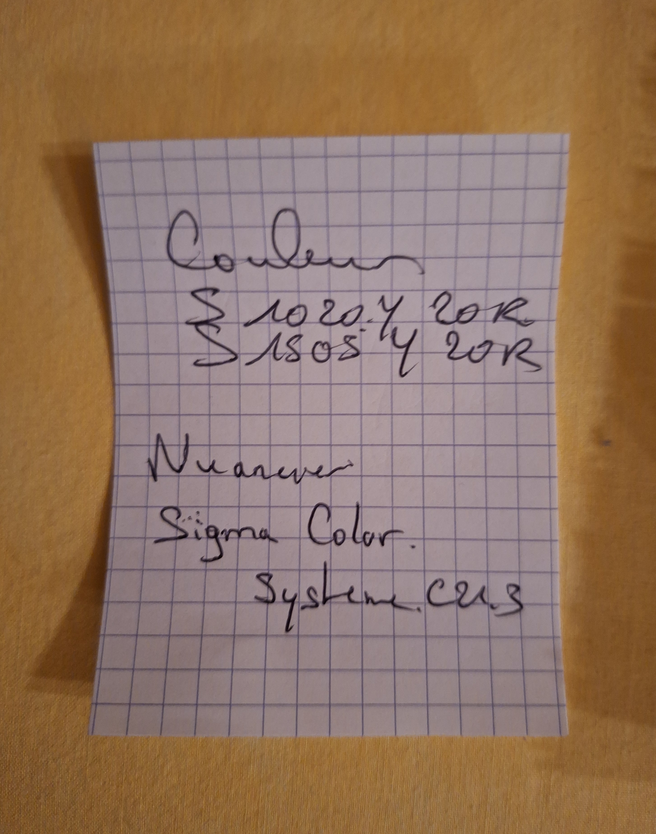 Couleur
S 1020.Y 20R
S 1505 Y 20R
Nuancier
Sigma Color.
Systeme. C21.3